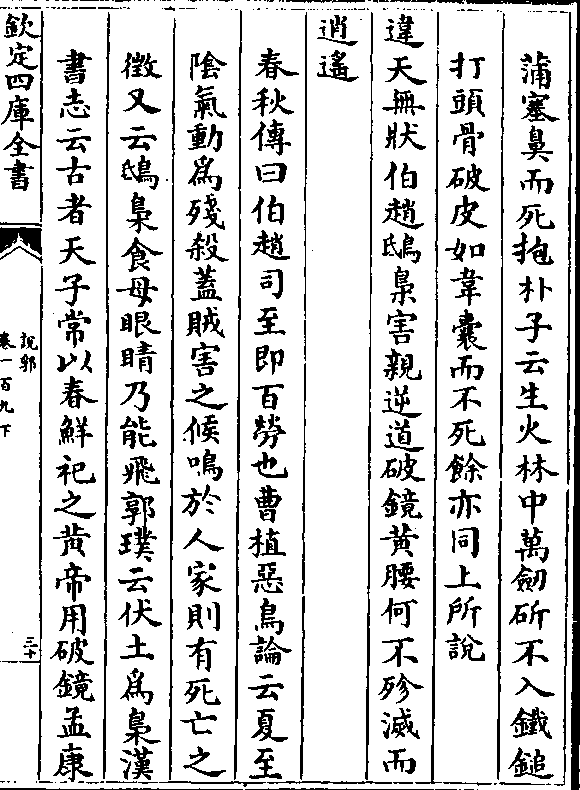 蒲塞鼻而死抱朴子云生火林中萬劒斫不入鐵鎚
打頭骨破皮如韋囊而不死餘亦同上所說
違天無狀伯趙鴟梟害親逆道破鏡黄腰何不殄滅而
逍遙
春秋傳曰伯趙司至即百勞也曹植惡鳥論云夏至
陰氣動為殘殺蓋賊害之候鳴於人家則有死亡之
徴又云鴟梟食母眼睛乃能飛郭璞云伏土為梟漢
書志云古者天子常以春鮮祀之黄帝用破鏡孟康
欽定四庫全書
說郛
卷一百九下
三十